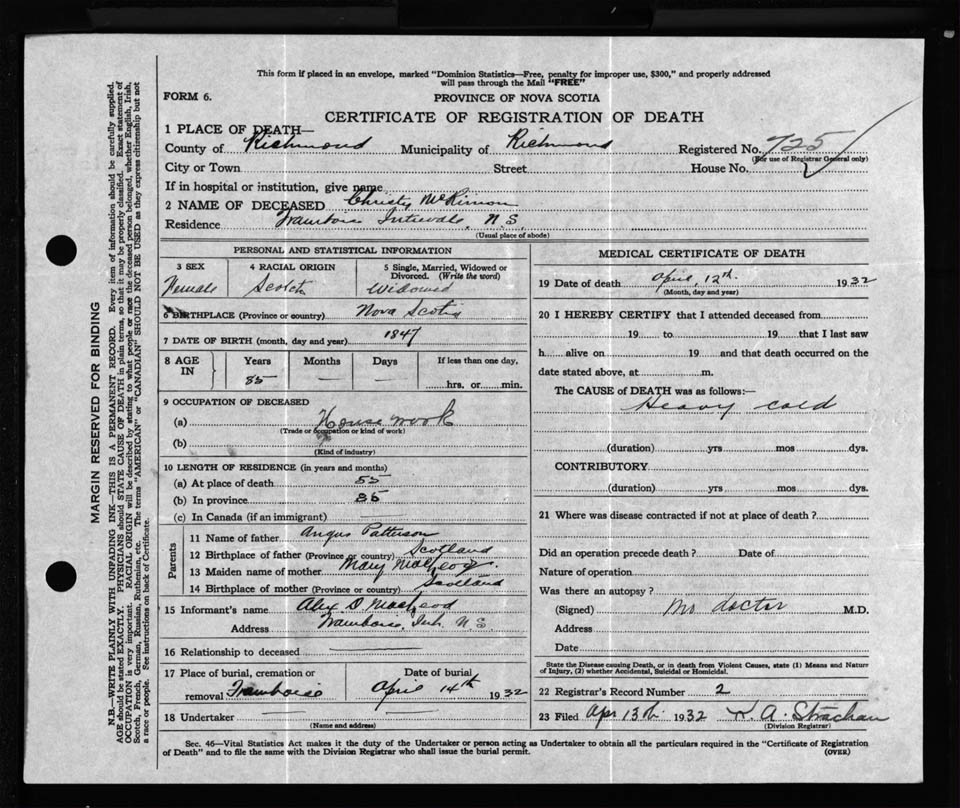 This form if placed in an envelope, marked "Dominion Statistics—Free, penalty for improper use, $300," and properly addressed
will pass through the Mail "FREE"
FORM 6.
PROVINCE OF NOVA SCOTIA
CERTIFICATE OF REGISTRATION OF DEATH
1 PLACE OF DEATH—
County of Richmond Municipality of Richmond Registered No. 725
(For use of Registrar General only)
City or Town Street House No.
If in hospital or institution, give name
2 NAME OF DECEASED Christy McKinnon
Residence Framboise Intervale, N.S.
(Usual place of abode)
PERSONAL AND STATISTICAL INFORMATION
3 SEX 4 RACIAL ORIGIN 5 Single, Married, Widowed or Divorced. (Write the word)
Female Scotch Widowed
6 BIRTHPLACE (Province or country) Nova Scotia
7 DATE OF BIRTH (month, day and year) 1847
8 AGE IN Years Months Days If less than one day,
85 — — hrs. or min.
9 OCCUPATION OF DECEASED
(a) House work
(Trade or occupation or kind of work)
(b)
(Kind of industry)
10 LENGTH OF RESIDENCE (in years and months)
(a) At place of death 55
(b) In province 85
(c) In Canada (if an immigrant) —
Parents
11 Name of father Angus Patterson
12 Birthplace of father (Province or country) Scotland
13 Maiden name of mother Mary MacLeod
14 Birthplace of mother (Province or country) Scotland
15 Informant's name Alex D MacLeod
Address Framboise, Int. N S
16 Relationship to deceased —
17 Place of burial, cremation or removal Framboise Date of burial April 14th 1932
18 Undertaker — —
(Name and address)
MEDICAL CERTIFICATE OF DEATH
19 Date of death April, 12th 1932
(Month, day and year)
20 I HEREBY CERTIFY that I attended deceased from
19 to 19 that I last saw
h alive on 19 and that death occurred on the
date stated above, at m.
The CAUSE of DEATH was as follows:—
Heavy cold
(duration) yrs mos dys.
CONTRIBUTORY
(duration) yrs mos dys.
21 Where was disease contracted if not at place of death?
Did an operation precede death? Date of
Nature of operation
Was there an autopsy?
(Signed) No doctor M.D.
Address
Date
State the Disease causing Death, or in death from Violent Causes, state (1) Means and Nature
of Injury, (2) whether Accidental, Suicidal or Homicidal.
22 Registrar's Record Number 2
23 Filed Apr 13th 1932 K. A. Strachan
(Division Registrar)
Sec. 46—Vital Statistics Act makes it the duty of the Undertaker or person acting as Undertaker to obtain all the particulars required in the "Certificate of Registration
of Death" and to file the same with the Division Registrar who shall issue the burial permit. (OVER)
MARGIN RESERVED FOR BINDING
N.B.—WRITE PLAINLY WITH UNFADING INK—THIS IS A PERMANENT RECORD. Every item of information should be carefully supplied.
AGE should be stated EXACTLY. PHYSICIANS should STATE CAUSE OF DEATH in plain terms, so that it may be properly classified. Exact statement of
OCCUPATION is very important. RACIAL ORIGIN will be described by stating to what people or race the deceased person belonged, whether English, Irish,
Scotch, French, German, Russian, Ruthenian, etc. The terms "AMERICAN" or "CANADIAN" SHOULD NOT BE USED as they express citizenship but not
a race or people. See instructions on back of Certificate.